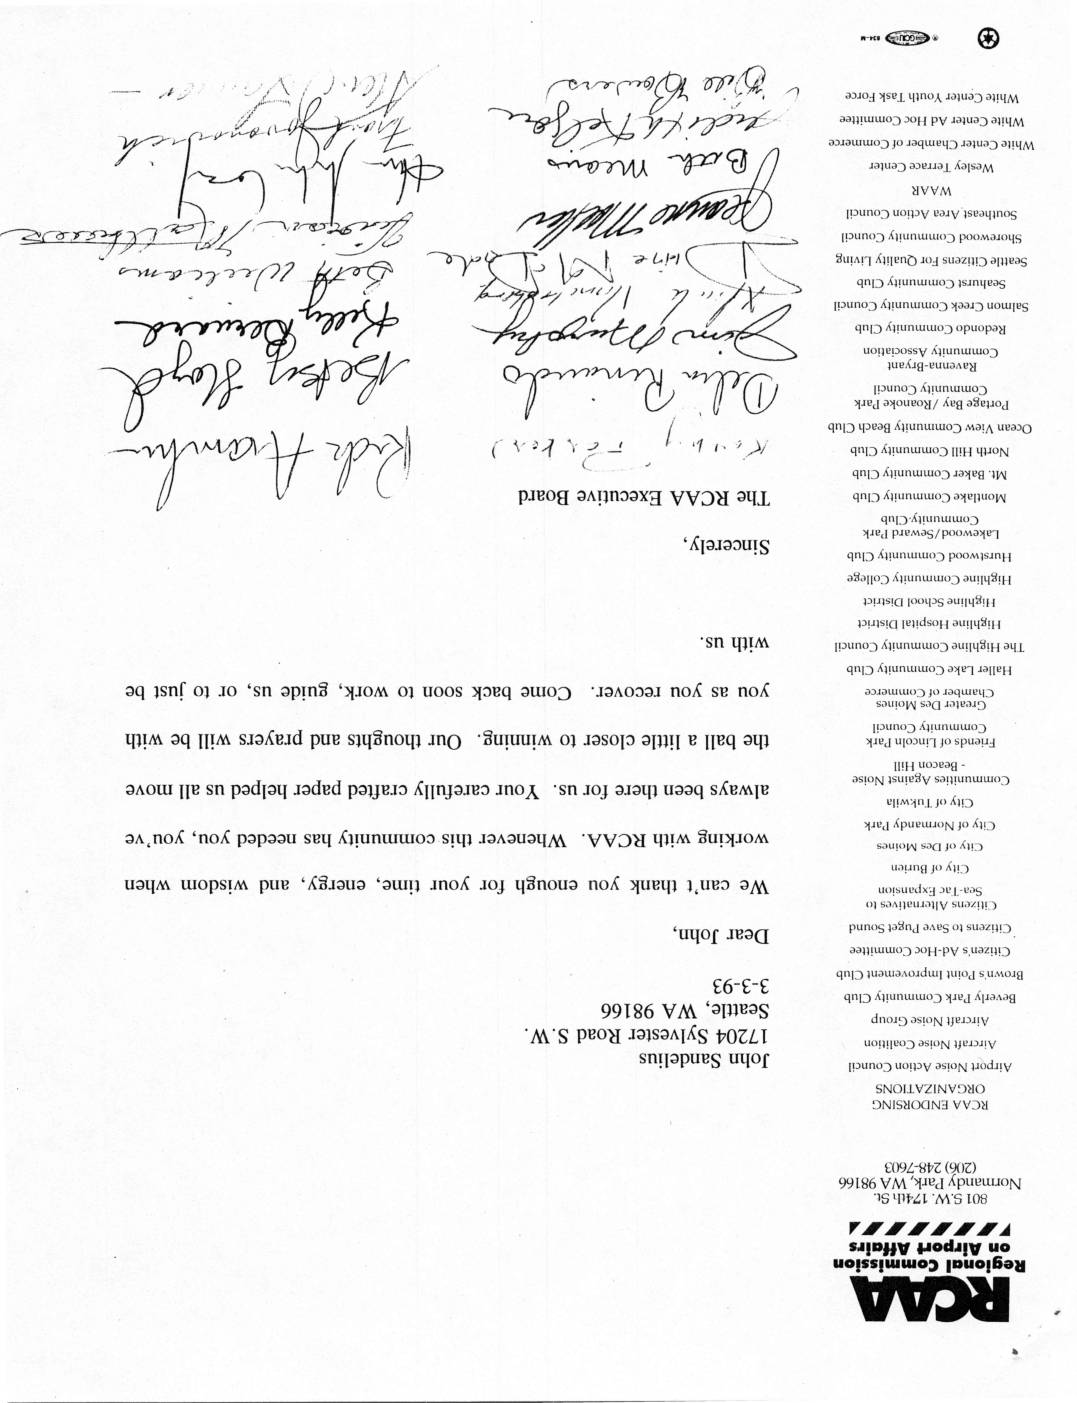 RCAA
Regional Commission
on Airport Affairs
801 S.W. 174th St.
Normandy Park, WA 98166
(206) 248-7603
RCAA ENDORSING
ORGANIZATIONS
Airport Noise Action Council
Aircraft Noise Coalition
Aircraft Noise Group
Beverly Park Community Club
Brown's Point Improvement Club
Citizen's Ad-Hoc Committee
Citizens to Save Puget Sound
Citizens Alternatives to
Sea-Tac Expansion
City of Burien
City of Des Moines
City of Normandy Park
City of Tukwila
Communities Against Noise
- Beacon Hill
Friends of Lincoln Park
Community Council
Greater Des Moines
Chamber of Commerce
Haller Lake Community Club
The Highline Community Council
Highline Hospital District
Highline School District
Highline Community College
Hurstwood Community Club
Lakewood/Seward Park
Community Club
Montlake Community Club
Mt. Baker Community Club
North Hill Community Club
Ocean View Community Beach Club
Portage Bay / Roanoke Park
Community Council
Ravenna-Bryant
Community Association
Redondo Community Club
Salmon Creek Community Council
Seahurst Community Club
Seattle Citizens For Quality Living
Shorewood Community Council
Southeast Area Action Council
WAAR
Wesley Terrace Center
White Center Chamber of Commerce
White Center Ad Hoc Committee
White Center Youth Task Force
John Sandelius
17204 Sylvester Road S.W.
Seattle, WA 98166
3-3-93
Dear John,
We can't thank you enough for your time, energy, and wisdom when
working with RCAA. Whenever this community has needed you, you've
always been there for us. Your carefully crafted paper helped us all move
the ball a little closer to winning. Our thoughts and prayers will be with
you as you recover. Come back soon to work, guide us, or to just be
with us.
Sincerely,
The RCAA Executive Board
Jim Murphy
Jeanne
Bob Means
Bill Bowers
Betsy Floyd
Kelly Bernard
Beth Williams
Vivian Matthews
834-M